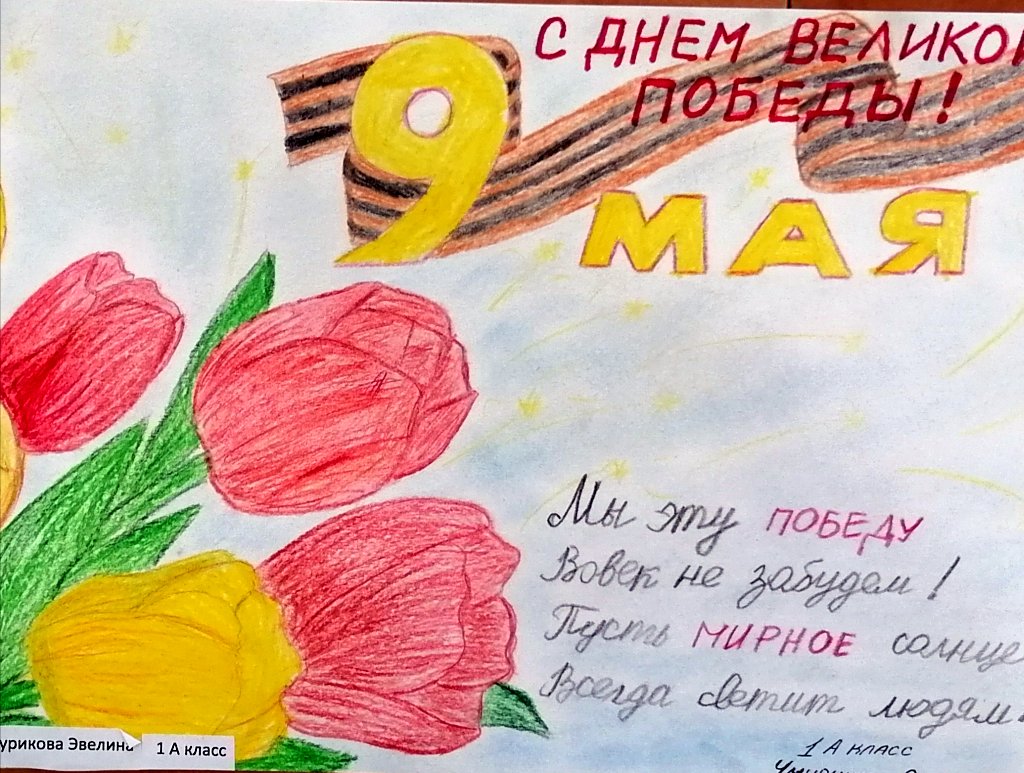 С ДНЕМ ВЕЛИКОЙ
ПОБЕДЫ!
9 МАЯ
Мы эту ПОБЕДУ
Вовек не забудем!
Пусть МИРНОЕ солнце
Всегда светит людям.
1 А класс
Эвелина 1 А класс